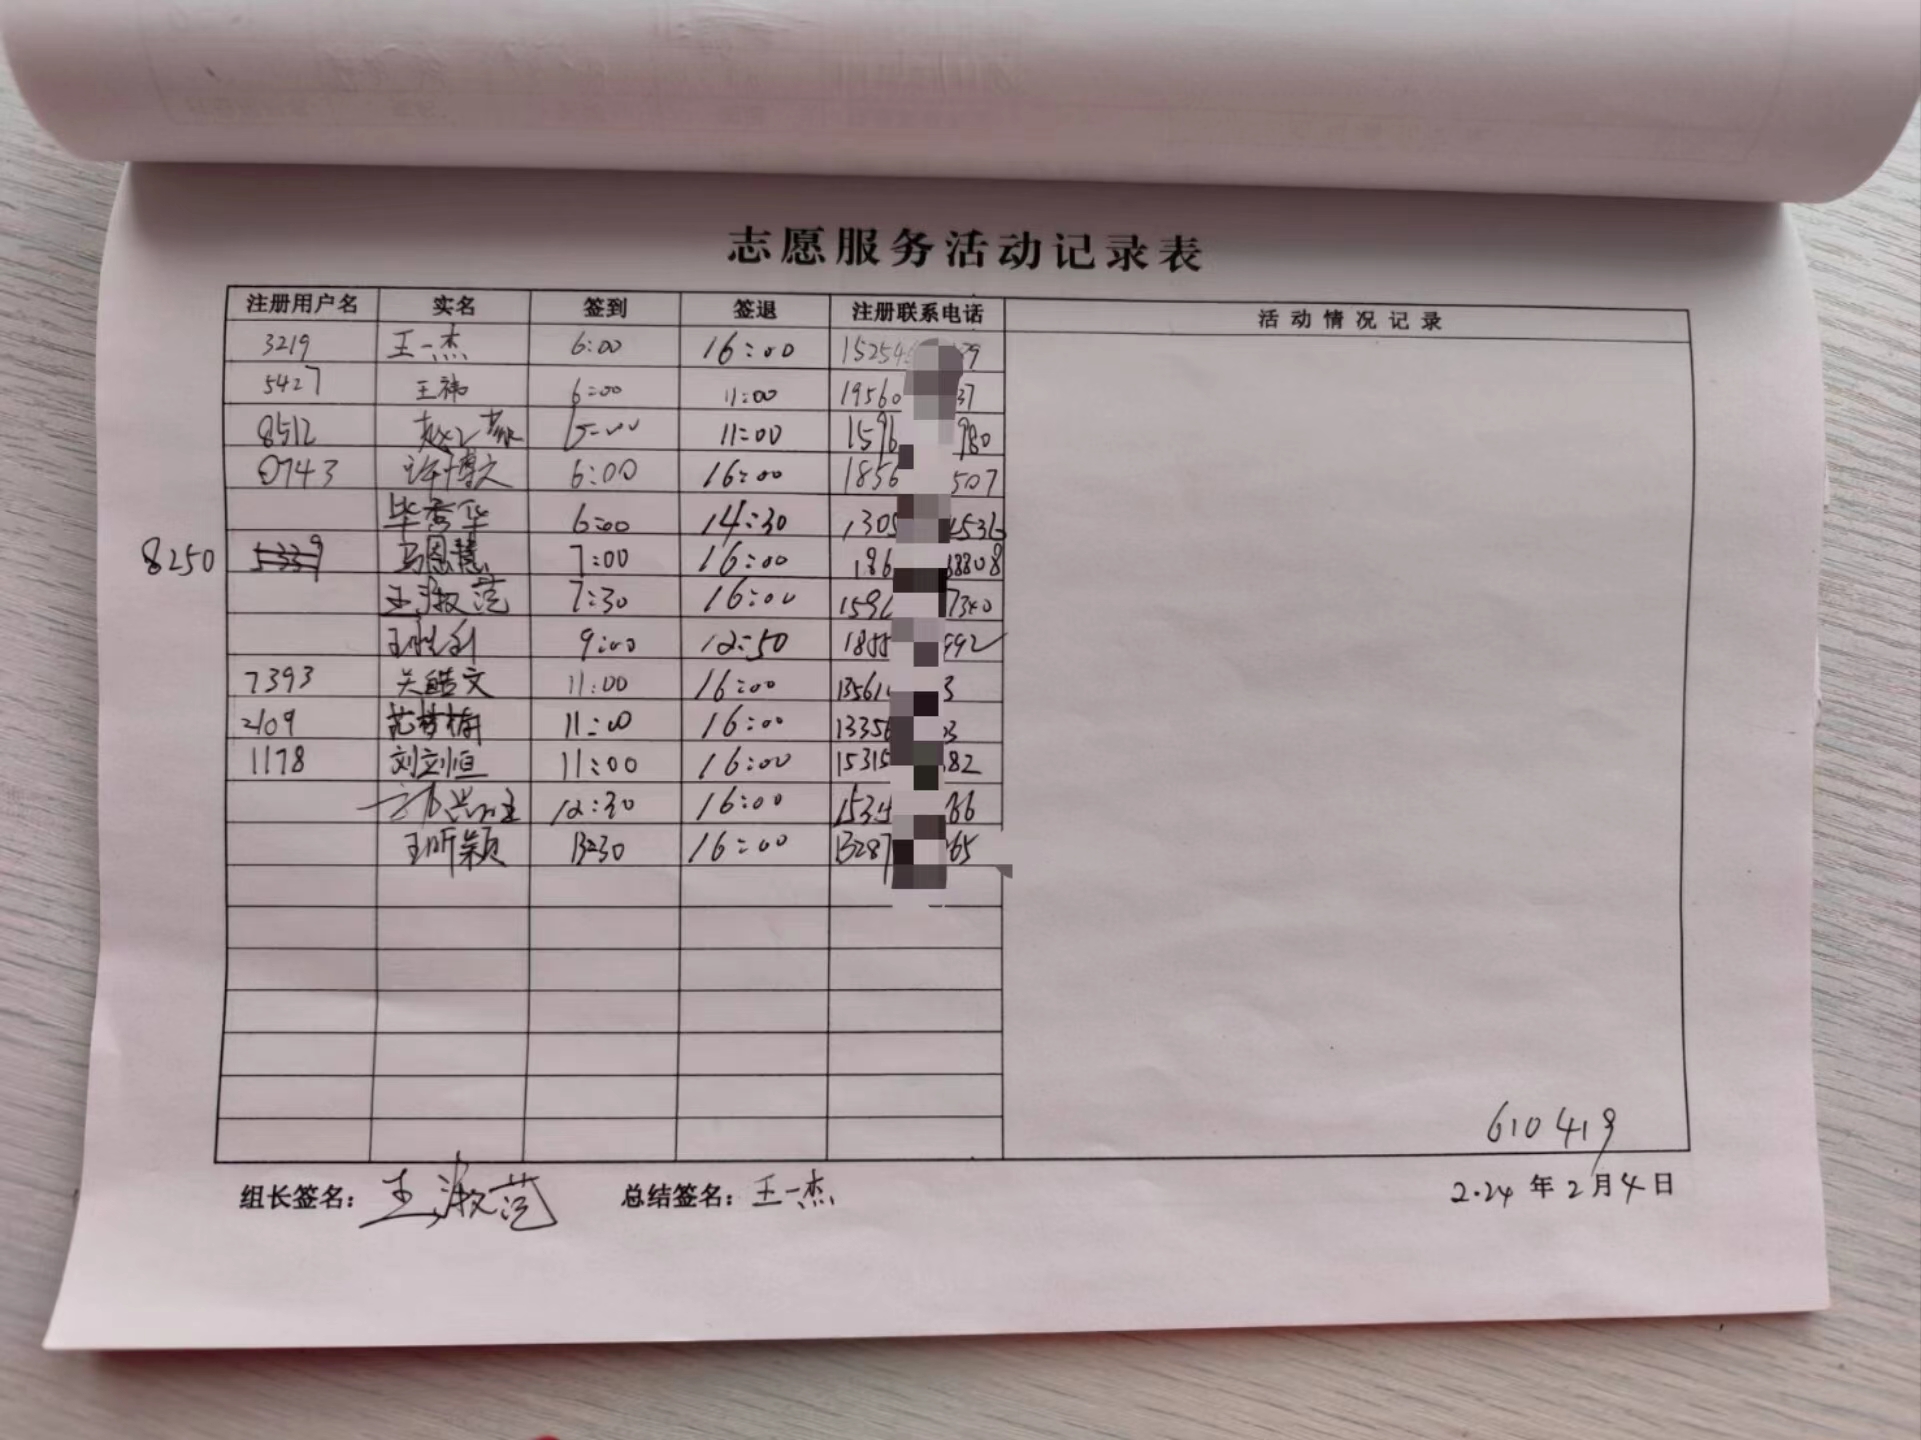 志愿服务活动记录表
注册用户名 实名 签到 签退 注册联系电话 活动情况记录
3219 王一杰 6:00 16:00 15254 39
5427 王祎 6:00 11:00 19560 37
8512 11:00 1596 980
0743 许博文 6:00 16:00 1856 507
毕秀华 6:00 14:30 1305 4536
8250 5339 马恩慧 7:00 16:00 186 38808
王淑范 7:30 16:00 159 7340
王胜利 9:00 12:50 1885 992
7393 关皓文 11:00 16:00 13561 3
2109 范梦楠 11:00 16:00 13356 03
1178 刘立恒 11:00 16:00 15315 82
12:30 16:00 1531 66
王昕颖 13:30 16:00 13287 65
610419
组长签名: 王淑范 总结签名: 王一杰 2.24 年 2 月 4 日